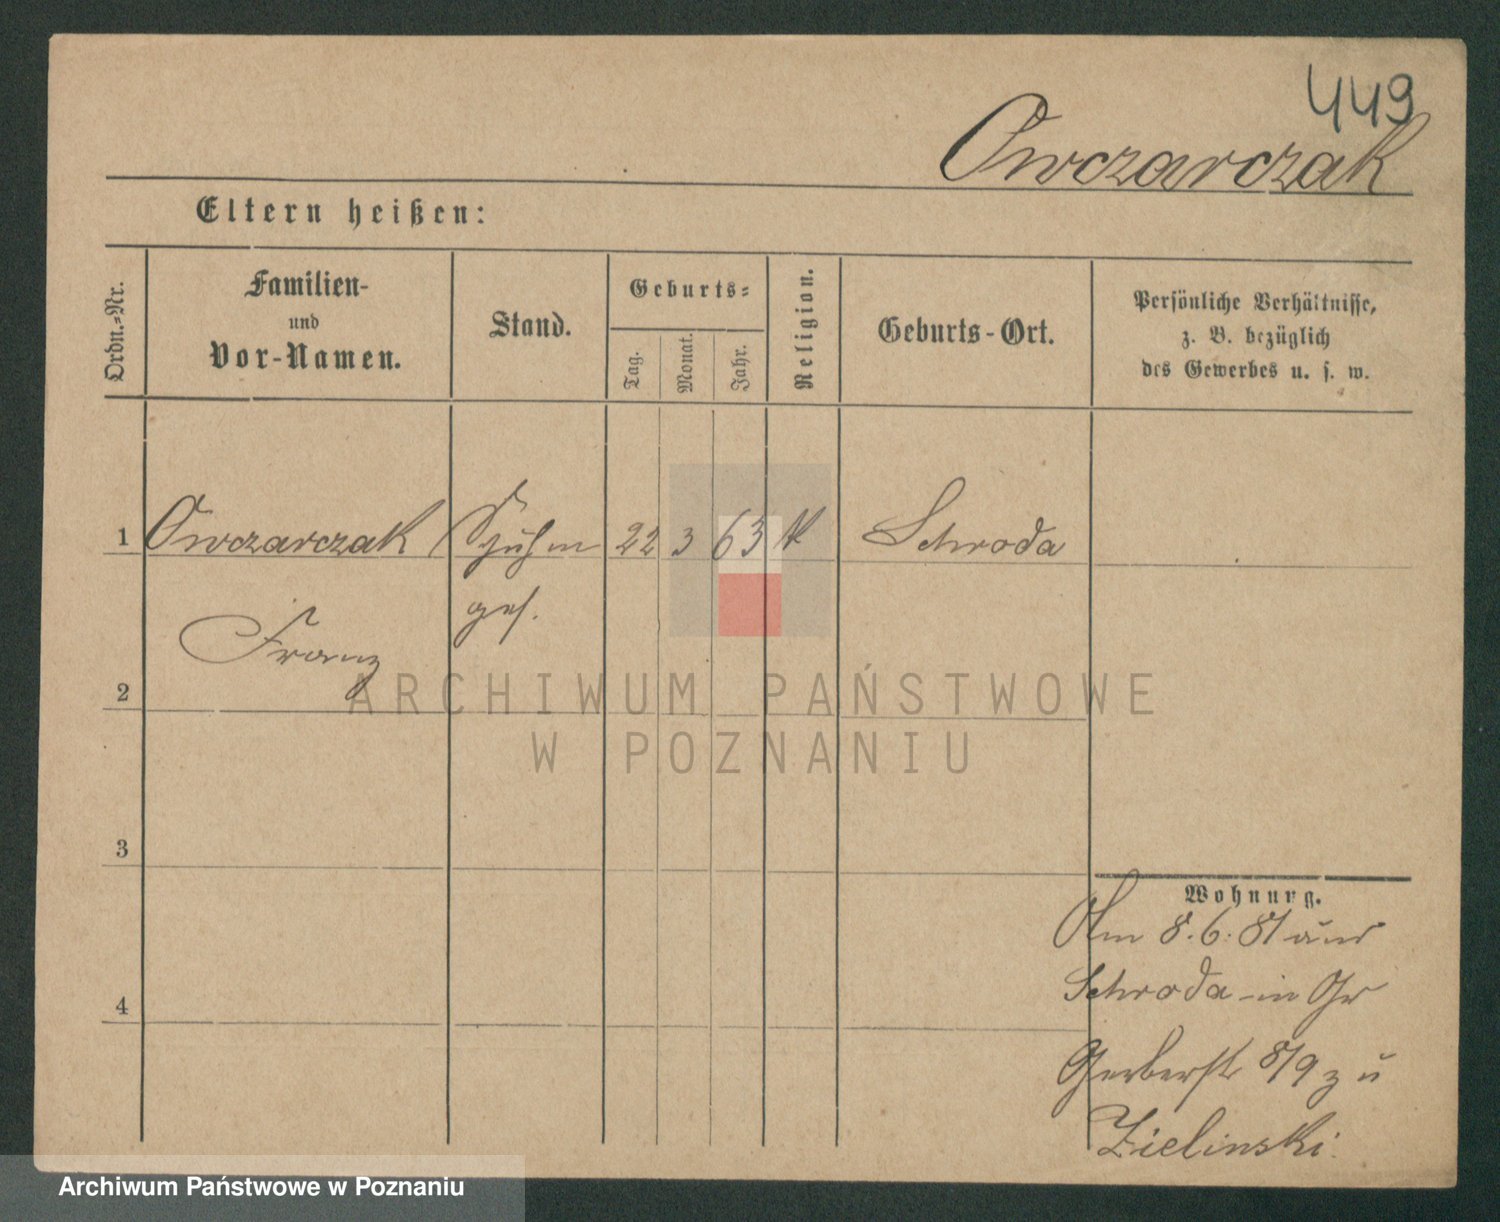 449
Owczarczak
Eltern heißen:
Ordn.-Nr.
Familien-
und
Vor-Namen.
Stand.
Geburts-
Tag.
Monat.
Jahr.
Religion.
Geburts-Ort.
Persönliche Verhältnisse,
z. B. bezüglich
des Gewerbes u. s. w.
1 Owczarczak Schuhm 22 3 63 k Schroda
ges.
Franz
2
ARCHIWUM PAŃSTWOWE
W POZNANIU
3
Wohnung.
Am 8.6.81 aus
4
Schroda in Gr
Gerberstr 8/9 zu
Zielinski.
Archiwum Państwowe w Poznaniu